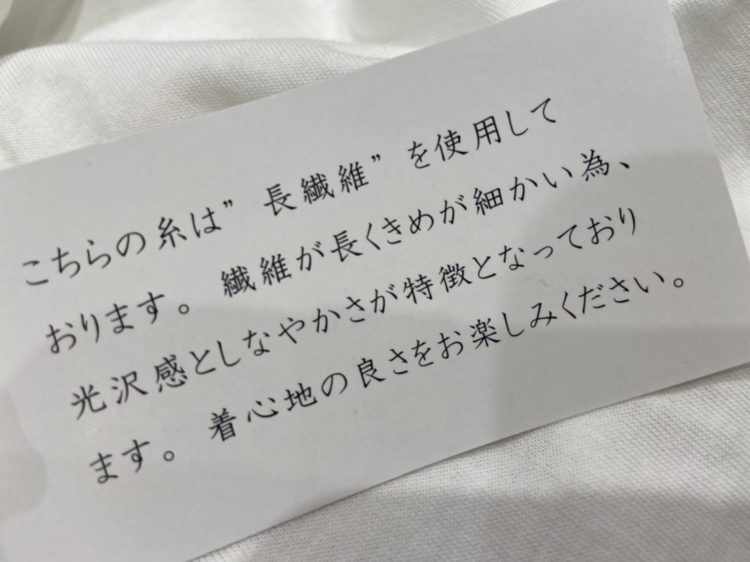 こちらの糸は”長繊維”を使用して
おります。繊維が長くきめが細かい為、
光沢感としなやかさが特徴となっており
ます。着心地の良さをお楽しみください。